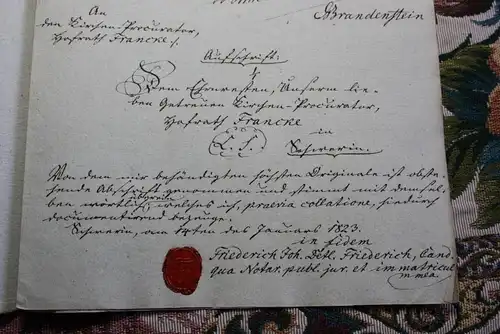 An
Brandenstein
den Kirchen-Procurator,
Hofrath Francke /.
Aufschrift:
Dem Ehrnvesten, Unserm lie-
ben Getreuen Kirchen-Procurator,
Hofrath Francke
in
(L. S.) Schwerin.
Von dem mir behändigten höchsten Originale ist obste-
hende Abschrift genommen und stimmt mit demsel-
ben wörtlich überein, welches ich, praevia collatione, hiedurch
documentirend bezeuge.
Schwerin, am 14ten des Januars 1823.
in fidem
Friederich Joh. Detl. Friederich, Cand.
qua Notar. publ. jur. et immatricul
mmea.